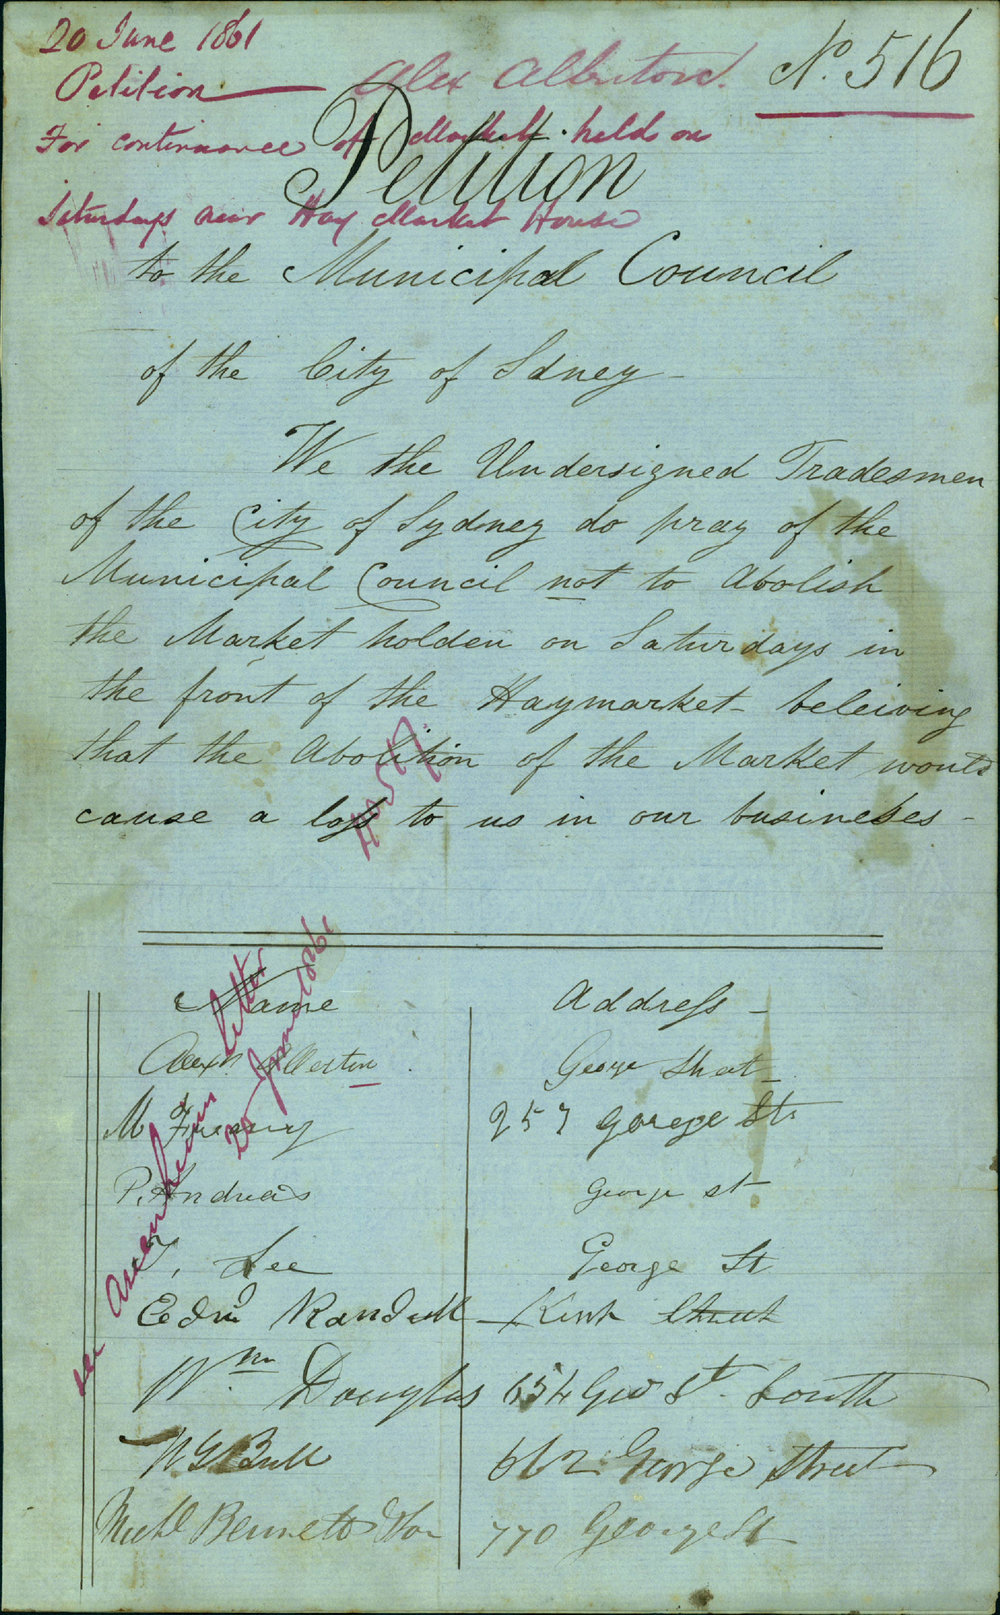 20 June 1861
Petition — Alex Albertond. No. 516
For continuance of Market held on
Petition
Saturdays near Hay Market House
to the Municipal Council
of the City of Sdney -
We the Undersigned Tradesmen
of the City of Sydney do pray of the
Municipal Council not to Abolish
the Market holden on Saturdays in
the front of the Haymarket - beleiving
that the Abolition of the Market would
cause a loss to us in our busineses -
No 517
see letter
20 June 1861
Name Address -
Alexr. George Street -
M 257 George St
P. Andreas George st
T. Lee George St
Edmd Randall - Kent Street
Wm. Douglas 654 Geo St. South
W G Bull 662 George Street
Michl Bennett & Son 770 George St